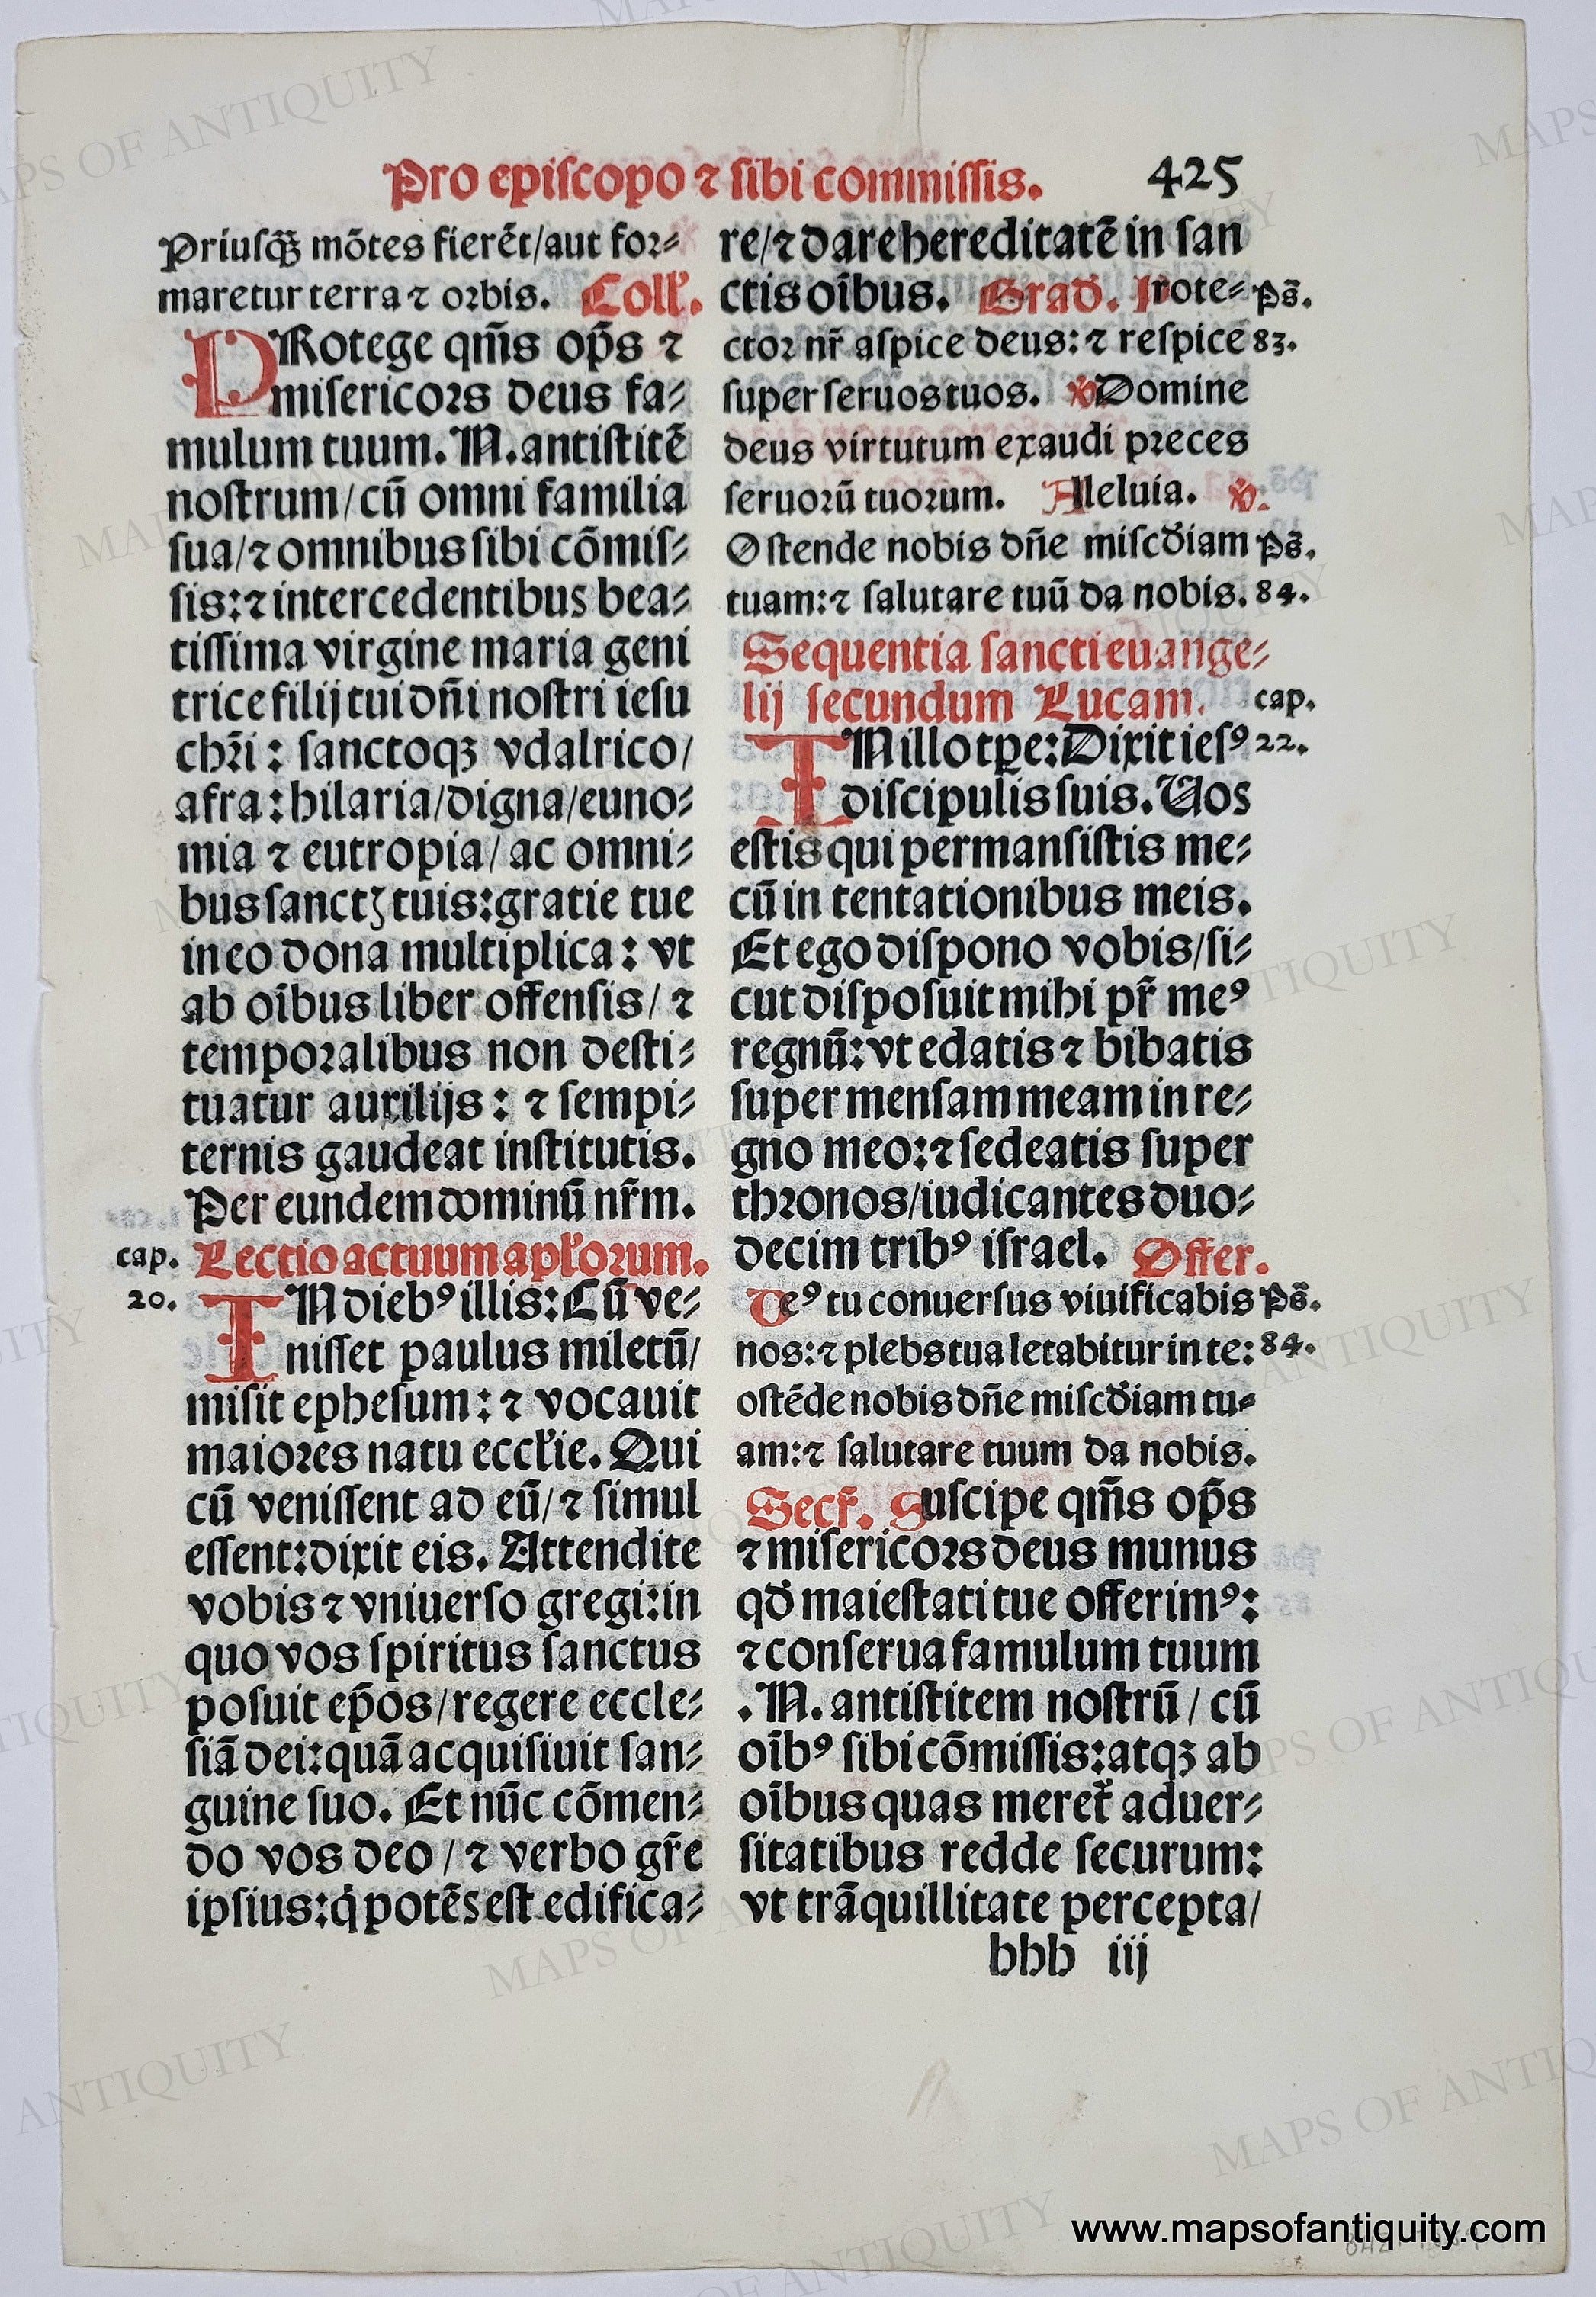 Pro episcopo ⁊ sibi commissis. 425
Priusq̃ꝫ mōtes fierēt/aut for⸗
maretur terra ⁊ orbis. Coll'.
PRotege qm̄s op̄s ⁊
misericors deus fa⸗
mulum tuum. N. antistitē
nostrum/cū omni familia
sua/⁊ omnibus sibi cōmis⸗
sis:⁊ intercedentibus bea⸗
tissima virgine maria geni
trice filij tui dn̄i nostri iesu
chr̄i: sanctoqꝫ vdalrico/
afra: hilaria/digna/euno⸗
mia ⁊ eutropia/ac omni⸗
bus sanctꝫ tuis: gratie tue
in eo dona multiplica: vt
ab oībus liber offensis/⁊
temporalibus non desti⸗
tuatur auxilijs: ⁊ sempi⸗
ternis gaudeat institutis.
Per eundem dominū nr̄m.
cap. Lectio actuum apl'orum.
20. IN diebꝰ illis: Cū ve⸗
nisset paulus miletū/
misit ephesum: ⁊ vocauit
maiores natu eccl'ie. Qui
cū venissent ad eū/⁊ simul
essent: dixit eis. Attendite
vobis ⁊ vniuerso gregi: in
quo vos spiritus sanctus
posuit ep̄os/regere eccle⸗
siā dei: quā acquisiuit san⸗
guine suo. Et nūc cōmen⸗
do vos deo/⁊ verbo gr̄e
ipsius: q̇ potēs est edifica⸗
re/⁊ dare hereditatē in san
ctis oībus. Grad'. Prote⸗ Ps̄.
ctor nr̄ aspice deus: ⁊ respice 83.
super seruos tuos. ℣ Domine
deus virtutum exaudi preces
seruorū tuorum. Alleluia. ℣.
Ostende nobis dn̄e miscd'iam Ps̄.
tuam: ⁊ salutare tuū da nobis. 84.
Sequentia sancti euange⸗
lij secundum Lucam. cap.
IN illo tꝑe: Dixit iesꝰ 22.
discipulis suis. Vos
estis qui permansistis me⸗
cū in tentationibus meis.
Et ego dispono vobis/si⸗
cut disposuit mihi pr̄ meꝰ
regnū: vt edatis ⁊ bibatis
super mensam meam in re⸗
gno meo: ⁊ sedeatis super
thronos/iudicantes duo⸗
decim tribꝰ israel. Offer.
Deꝰ tu conuersus viuificabis Ps̄.
nos: ⁊ plebs tua letabitur in te: 84.
ostēde nobis dn̄e miscd'iam tu⸗
am: ⁊ salutare tuum da nobis.
Secr̄. Suscipe qm̄s op̄s
⁊ misericors deus munus
qd' maiestati tue offerimꝰ:
⁊ conserua famulum tuum
.N. antistitem nostrū/cū
oībꝰ sibi cōmissis: atqꝫ ab
oībus quas meret' aduer⸗
sitatibus redde securum:
vt trāquillitate percepta/
bbb iij
www.mapsofantiquity.com
MAPS OF ANTIQUITY